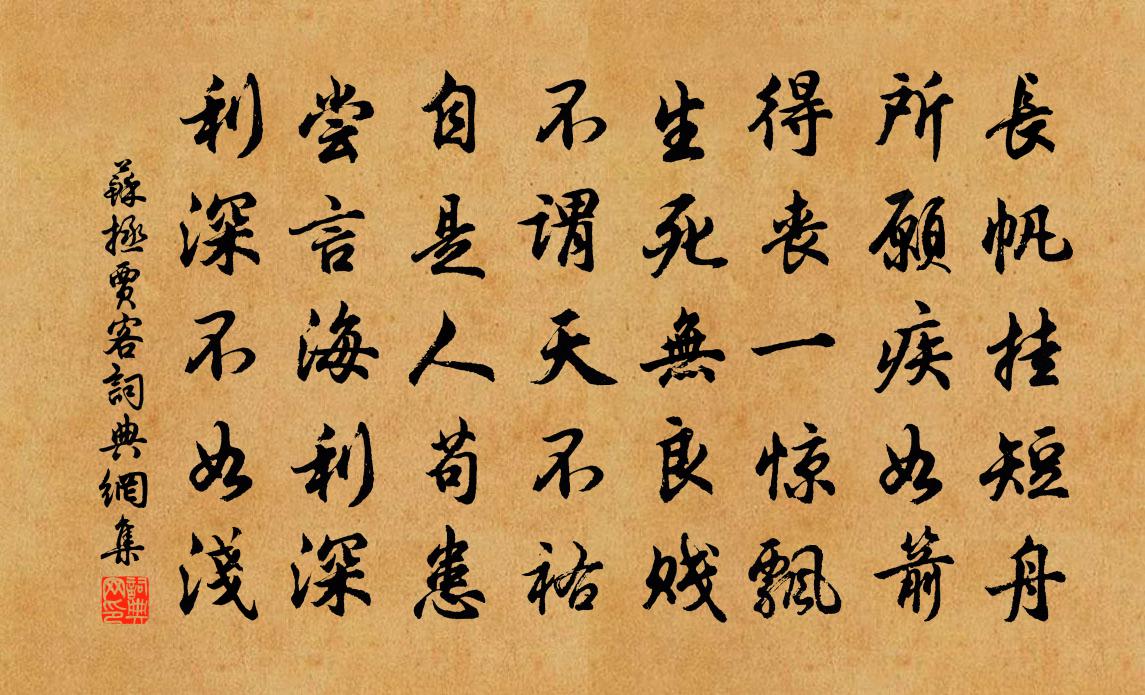 長帆挂短舟
所願疾如箭
得丧一惊飄
生死無良賤
不謂天不祐
自是人苟患
尝言海利深
利深不如淺
蘇拯賈客詞典網集
詞典网印